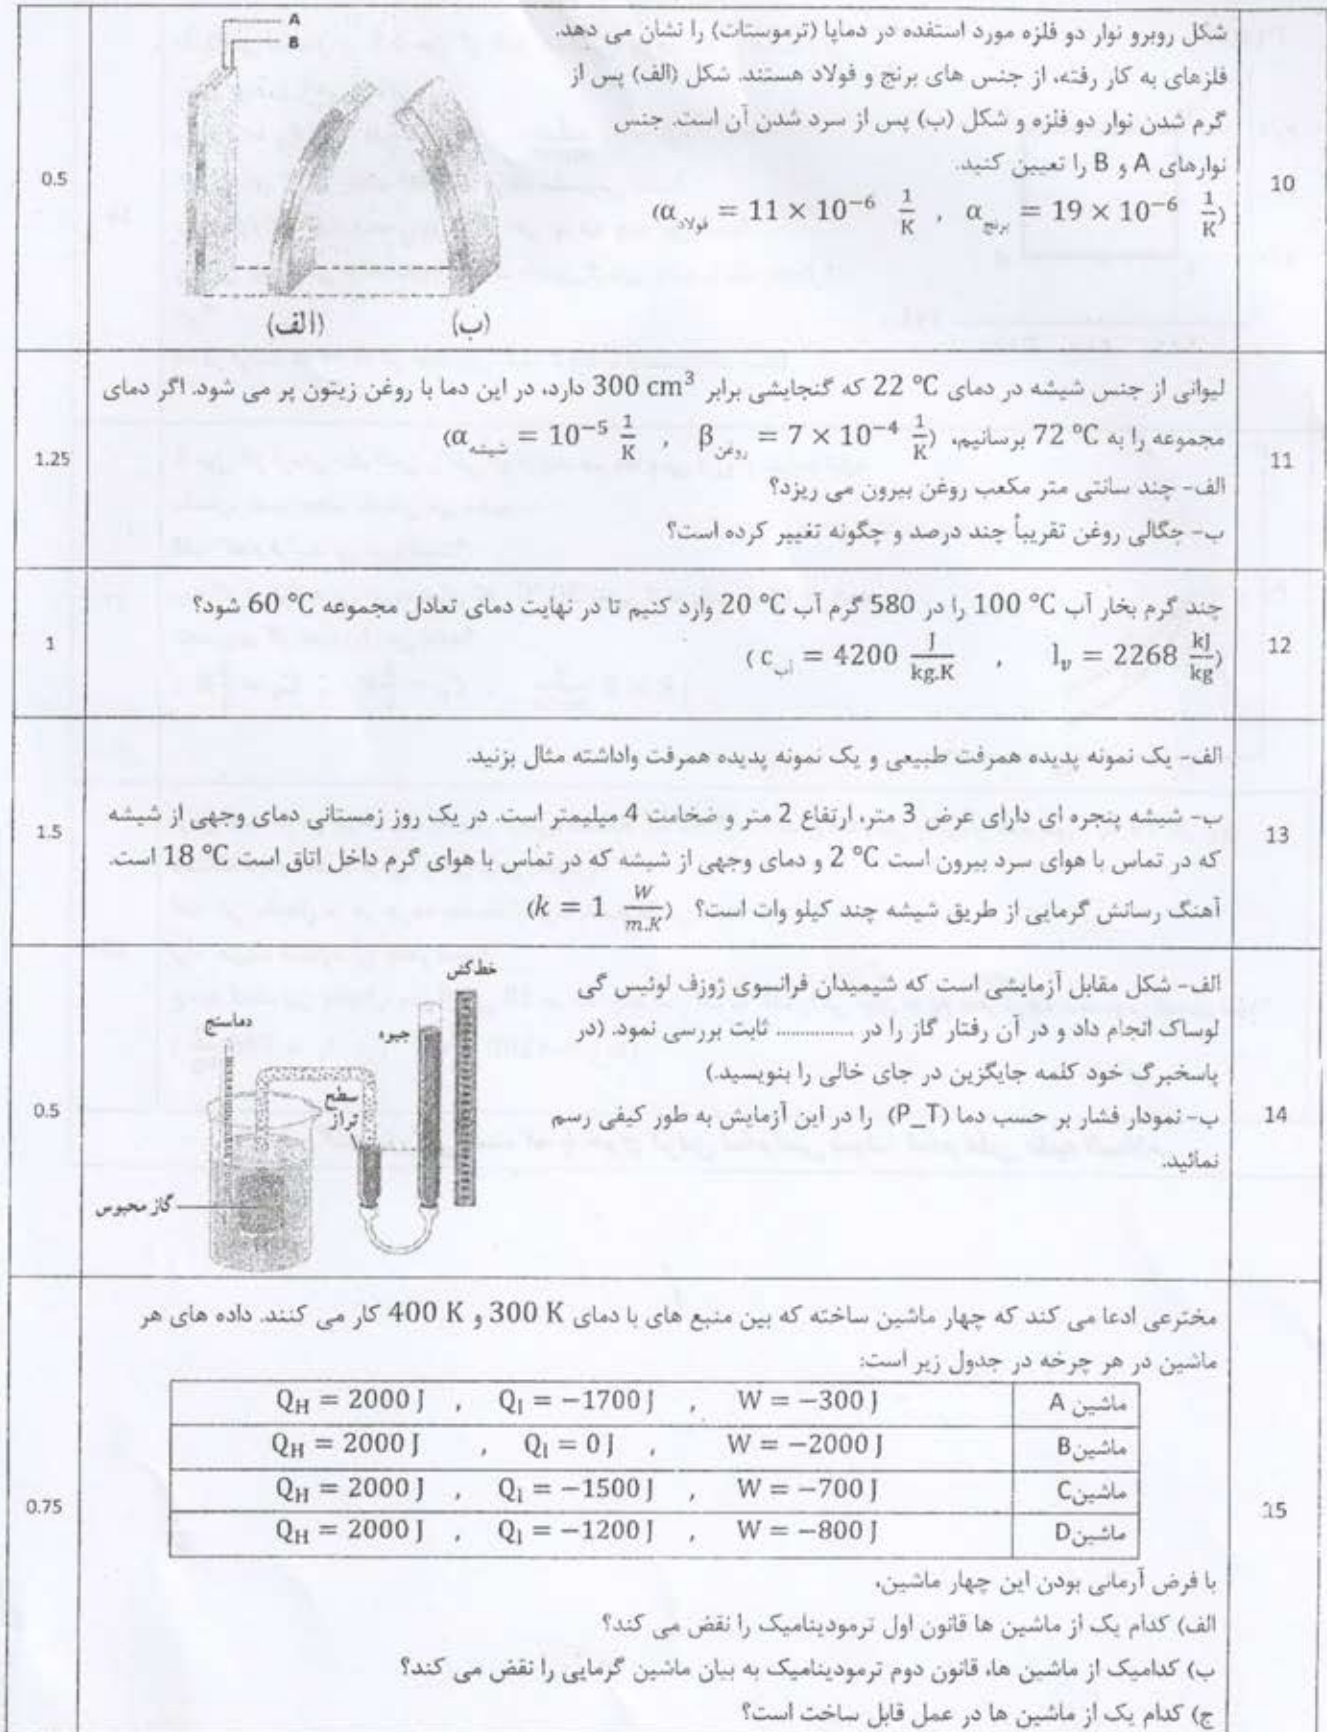 10
شکل روبرو نوار دو فلزه مورد استفده در دماپا (ترموستات) را نشان می دهد.
فلزهای به کار رفته، از جنس های برنج و فولاد هستند. شکل (الف) پس از
گرم شدن نوار دو فلزه و شکل (ب) پس از سرد شدن آن است. جنس
نوارهای A و B را تعیین کنید.
(α_فولاد = 11 × 10⁻⁶ 1/K , α_برنج = 19 × 10⁻⁶ 1/K)
A
B
(الف)
(ب)
0.5
11
لیوانی از جنس شیشه در دمای 22 °C که گنجایشی برابر 300 cm³ دارد، در این دما با روغن زیتون پر می شود. اگر دمای
مجموعه را به 72 °C برسانیم، (α_شیشه = 10⁻⁵ 1/K , β_روغن = 7 × 10⁻⁴ 1/K)
الف- چند سانتی متر مکعب روغن بیرون می ریزد؟
ب- چگالی روغن تقریباً چند درصد و چگونه تغییر کرده است؟
1.25
12
چند گرم بخار آب 100 °C را در 580 گرم آب 20 °C وارد کنیم تا در نهایت دمای تعادل مجموعه 60 °C شود؟
(c_آب = 4200 J/kg.K , l_v = 2268 kJ/kg)
1
13
الف- یک نمونه پدیده همرفت طبیعی و یک نمونه پدیده همرفت واداشته مثال بزنید.
ب- شیشه پنجره ای دارای عرض 3 متر، ارتفاع 2 متر و ضخامت 4 میلیمتر است. در یک روز زمستانی دمای وجهی از شیشه
که در تماس با هوای سرد بیرون است 2 °C و دمای وجهی از شیشه که در تماس با هوای گرم داخل اتاق است 18 °C است.
آهنگ رسانش گرمایی از طریق شیشه چند کیلو وات است؟ (k = 1 W/m.K)
1.5
14
الف- شکل مقابل آزمایشی است که شیمیدان فرانسوی ژوزف لوئیس گی
لوساک انجام داد و در آن رفتار گاز را در ............... ثابت بررسی نمود. (در
پاسخبرگ خود کلمه جایگزین در جای خالی را بنویسید.)
ب- نمودار فشار بر حسب دما (P_T) را در این آزمایش به طور کیفی رسم
نمائید.
خط‌کش
جیوه
دماسنج
سطح
تراز
گاز محبوس
0.5
15
مخترعی ادعا می کند که چهار ماشین ساخته که بین منبع های با دمای 300 K و 400 K کار می کنند. داده های هر
ماشین در هر چرخه در جدول زیر است:
ماشین A Q_H = 2000 J , Q_l = −1700 J , W = −300 J
ماشین B Q_H = 2000 J , Q_l = 0 J , W = −2000 J
ماشین C Q_H = 2000 J , Q_l = −1500 J , W = −700 J
ماشین D Q_H = 2000 J , Q_l = −1200 J , W = −800 J
با فرض آرمانی بودن این چهار ماشین،
الف) کدام یک از ماشین ها قانون اول ترمودینامیک را نقض می کند؟
ب) کدامیک از ماشین ها، قانون دوم ترمودینامیک به بیان ماشین گرمایی را نقض می کند؟
ج) کدام یک از ماشین ها در عمل قابل ساخت است؟
0.75